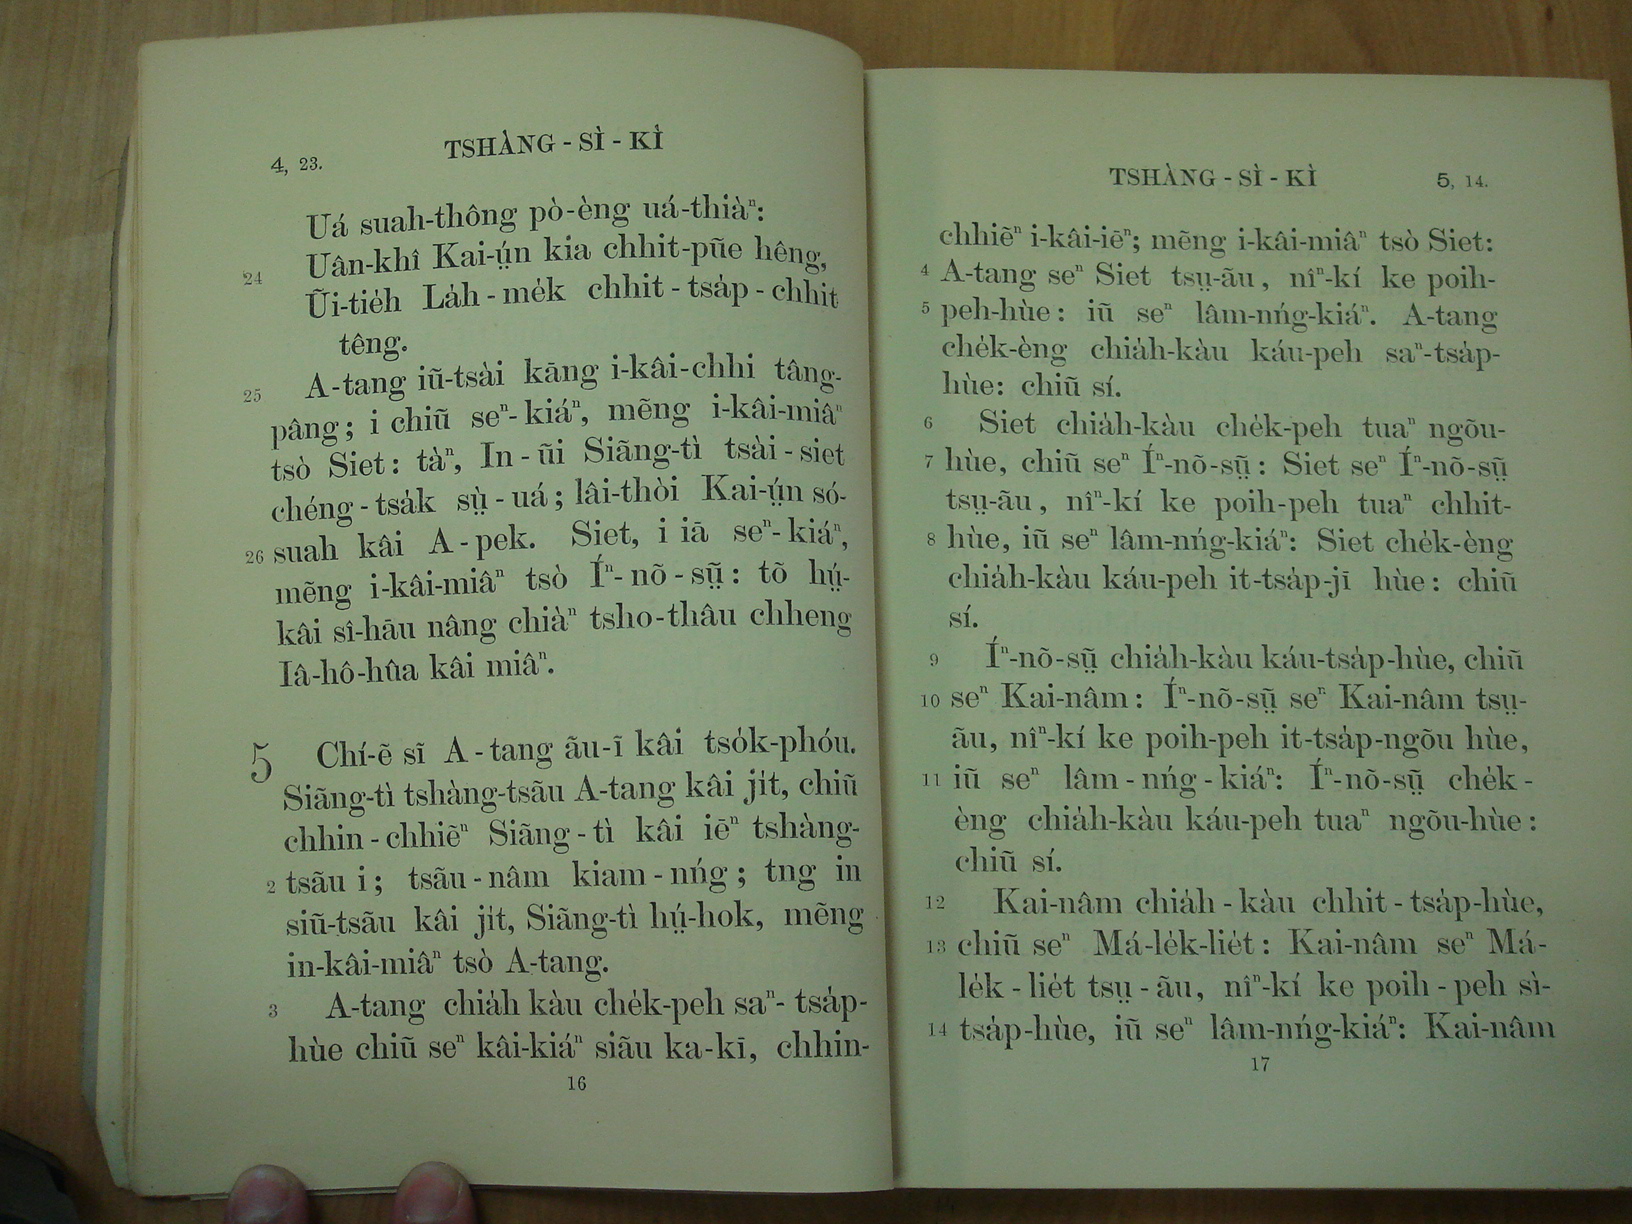 4, 23.
TSHÀNG - SÌ - KÌ
Uá suah-thông pò-èng uá-thiàⁿ:
24 Uân-khî Kai-ụ́n kia chhit-pũe hêng,
Ũi-tie̍h La̍h - me̍k chhit - tsa̍p - chhit
têng.
25 A-tang iũ-tsài kāng i-kâi-chhi tâng-
pâng; i chiũ seⁿ-kiáⁿ, mẽng i-kâi-miâⁿ
tsò Siet: tàⁿ, In - ũi Siãng-tì tsài - siet
chéng - tsa̍k sụ̀ - uá; lâi-thòi Kai-ụ́n só-
26 suah kâi A - pek. Siet, i iā seⁿ- kiáⁿ,
mẽng i-kâi-miâⁿ tsò Íⁿ- nõ - sụ̃: tõ hụ́-
kâi sî-hāu nâng chiàⁿ tsho-thâu chheng
Iâ-hô-hûa kâi miâⁿ.
5 Chí-ẽ sĩ A - tang ãu-ĩ kâi tso̍k-phóu.
Siãng-tì tshàng-tsãu A-tang kâi ji̍t, chiũ
chhin - chhiẽⁿ Siãng - tì kâi iēⁿ tshàng-
2 tsãu i; tsãu - nâm kiam - nńg; tng in
siũ-tsãu kâi ji̍t, Siãng-tì hụ́-hok, mẽng
in-kâi-miâⁿ tsò A-tang.
3 A-tang chia̍h kàu che̍k-peh saⁿ- tsa̍p-
hùe chiũ seⁿ kâi-kiáⁿ siãu ka-kī, chhin-
16
TSHÀNG - SÌ - KÌ
5, 14.
chhiẽⁿ i-kâi-iēⁿ; mẽng i-kâi-miâⁿ tsò Siet:
4 A-tang seⁿ Siet tsụ-ãu, nîⁿ-kí ke poih-
5 peh-hùe: iũ seⁿ lâm-nńg-kiáⁿ. A-tang
che̍k-èng chia̍h-kàu káu-peh saⁿ-tsa̍p-
hùe: chiũ sí.
6 Siet chia̍h-kàu che̍k-peh tuaⁿ ngõu-
7 hùe, chiũ seⁿ Íⁿ-nõ-sụ̃: Siet seⁿ Íⁿ-nõ-sụ̃
tsụ-ãu, nîⁿ-kí ke poih-peh tuaⁿ chhit-
8 hùe, iũ seⁿ lâm-nńg-kiáⁿ: Siet che̍k-èng
chia̍h-kàu káu-peh it-tsa̍p-jī hùe: chiũ
sí.
9 Íⁿ-nõ-sụ̃ chia̍h-kàu káu-tsa̍p-hùe, chiũ
10 seⁿ Kai-nâm: Íⁿ-nõ-sụ̃ seⁿ Kai-nâm tsụ-
ãu, nîⁿ-kí ke poih-peh it-tsa̍p-ngõu hùe,
11 iũ seⁿ lâm - nńg - kiáⁿ: Íⁿ-nõ-sụ̃ che̍k -
èng chia̍h-kàu káu-peh tuaⁿ ngõu-hùe:
chiũ sí.
12 Kai-nâm chia̍h - kàu chhit - tsa̍p-hùe,
13 chiũ seⁿ Má-le̍k-lie̍t: Kai-nâm seⁿ Má-
le̍k - lie̍t tsụ - ãu, nîⁿ-kí ke poih - peh sì-
14 tsa̍p-hùe, iũ seⁿ lâm-nńg-kiáⁿ: Kai-nâm
17